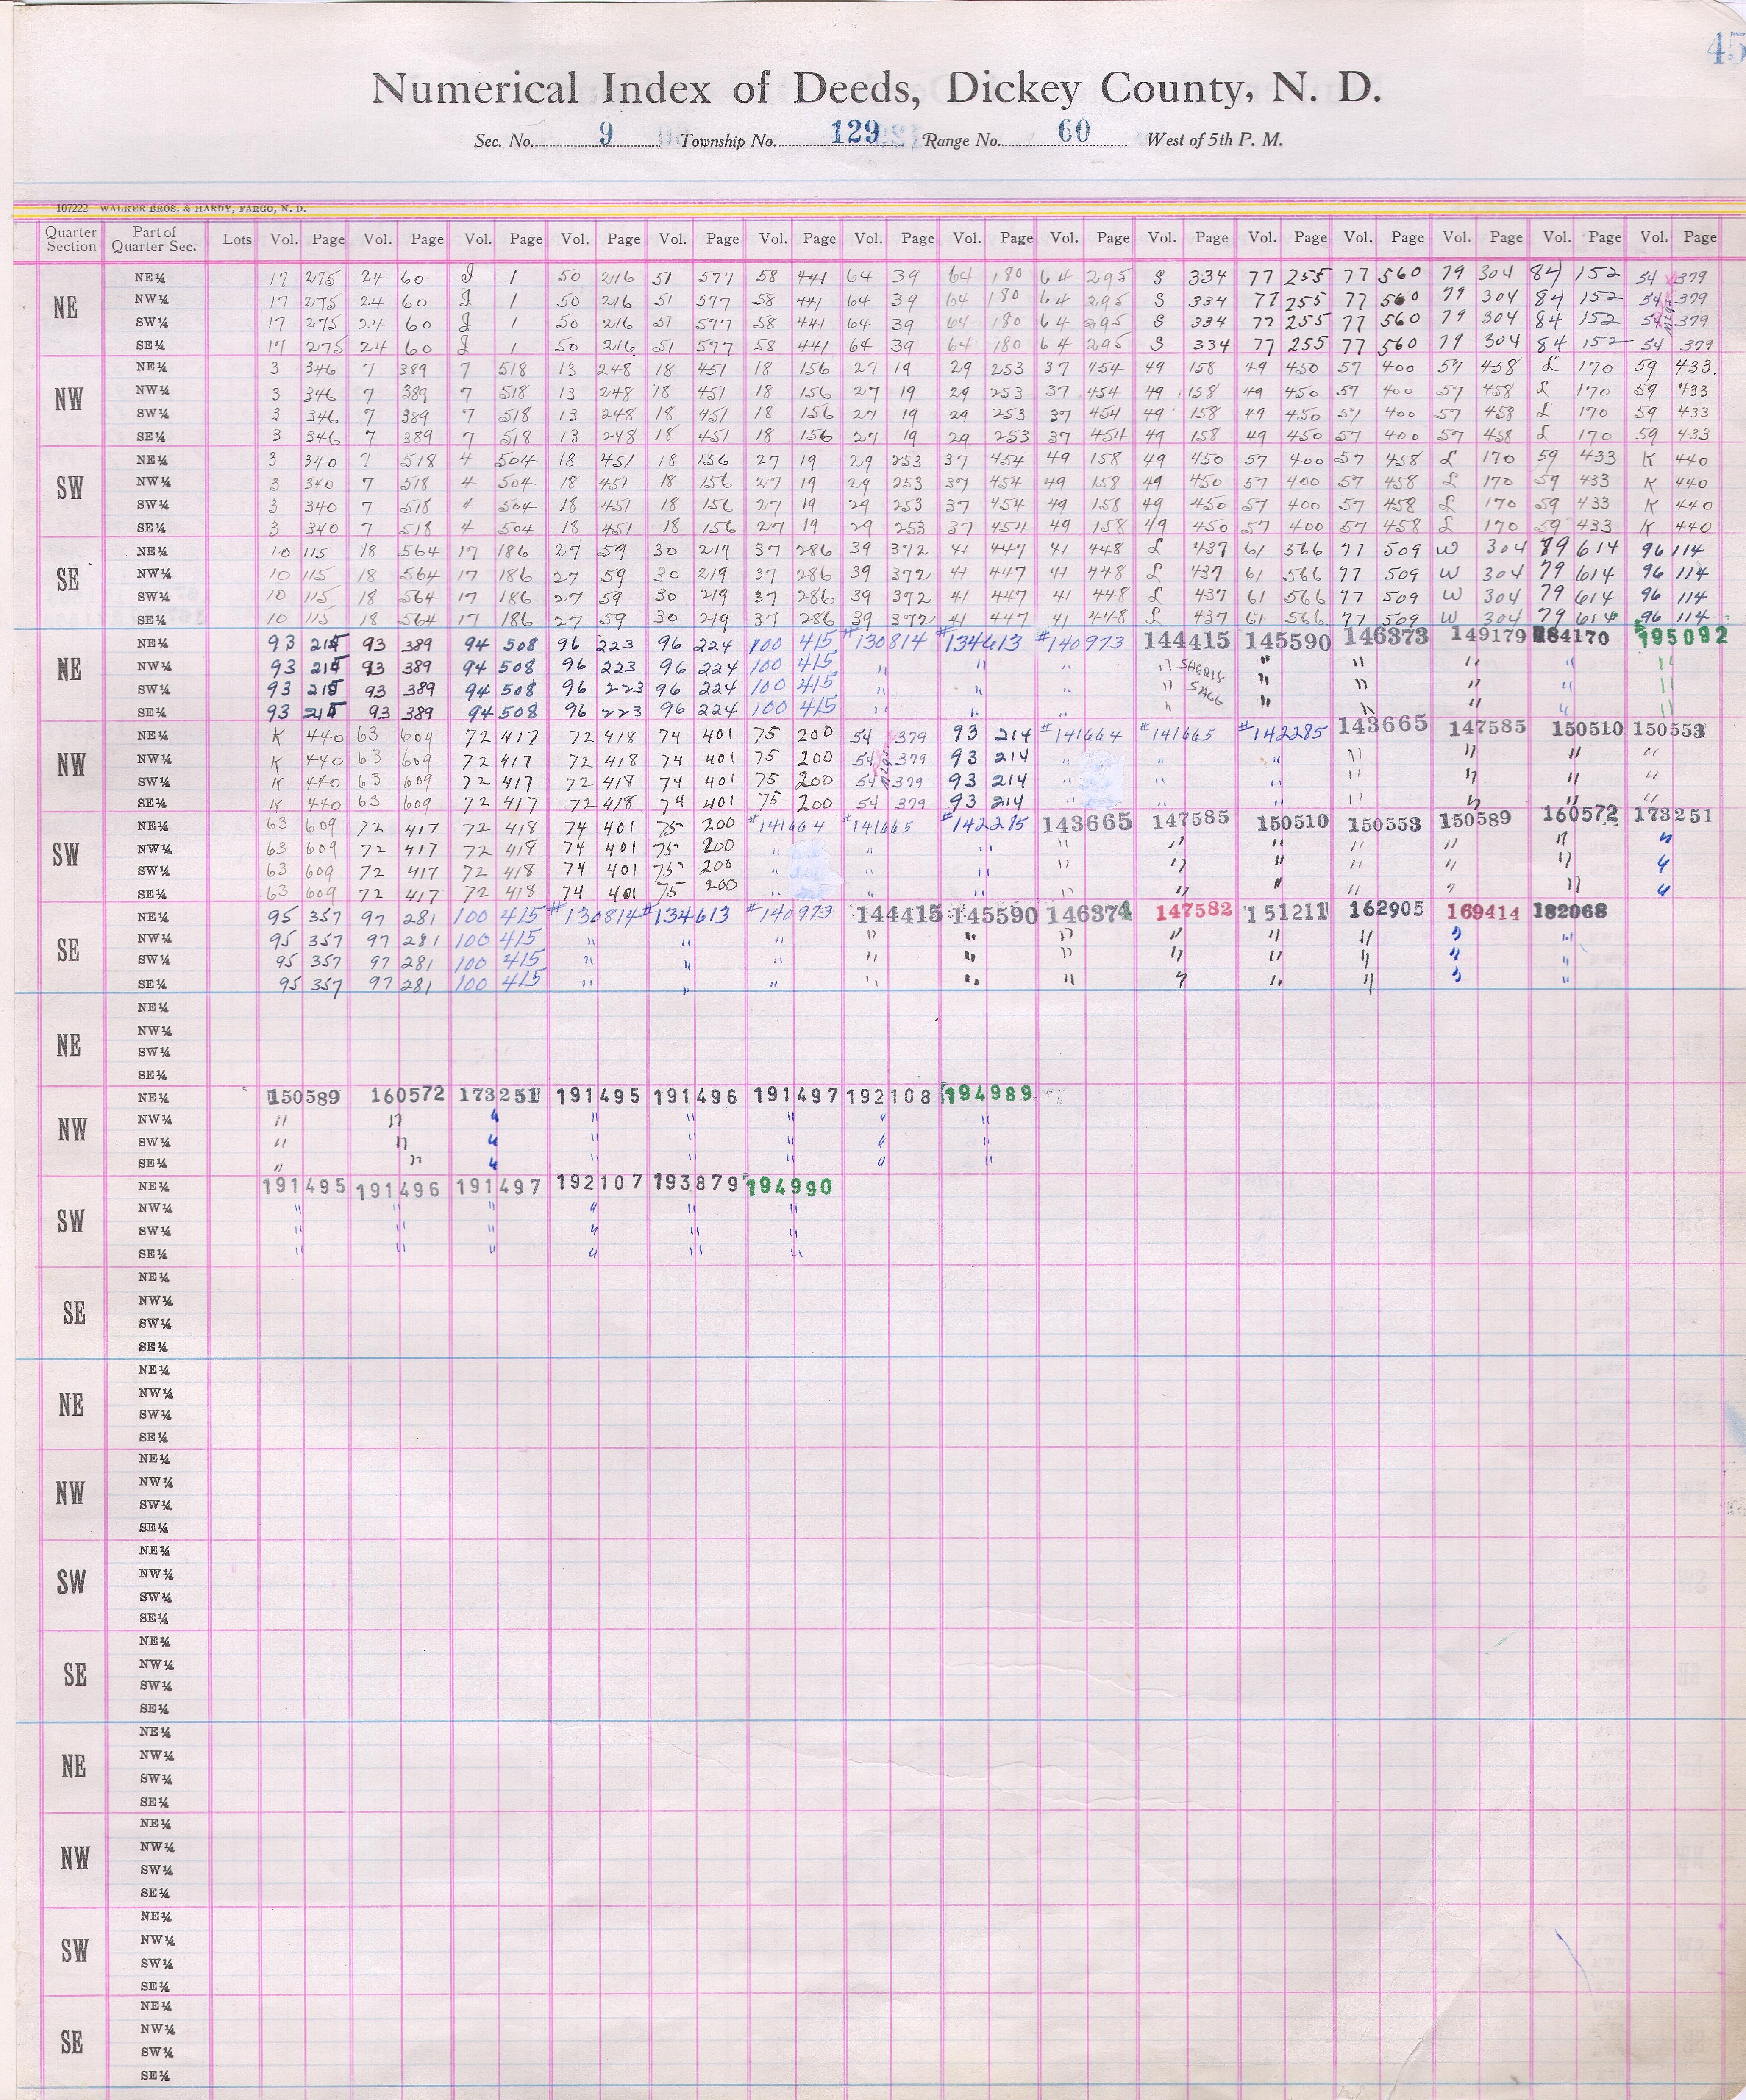 45
Numerical Index of Deeds, Dickey County, N. D.
Sec. No. 9 Township No. 129 Range No. 60 West of 5th P. M.
107222 WALKER BROS. & HARDY, FARGO, N. D.
Quarter Section Part of Quarter Sec. Lots Vol. Page Vol. Page Vol. Page Vol. Page Vol. Page Vol. Page Vol. Page Vol. Page Vol. Page Vol. Page Vol. Page Vol. Page Vol. Page Vol. Page Vol. Page
NE
NE¼ 17 275 24 60 J 1 50 216 51 577 58 441 64 39 64 180 64 295 S 334 77 255 77 560 79 304 84 152 54 379
NW¼ 17 275 24 60 J 1 50 216 51 577 58 441 64 39 64 180 64 295 S 334 77 255 77 560 79 304 84 152 54 379
SW¼ 17 275 24 60 J 1 50 216 51 577 58 441 64 39 64 180 64 295 S 334 77 255 77 560 79 304 84 152 54 379
SE¼ 17 275 24 60 J 1 50 216 51 577 58 441 64 39 64 180 64 295 S 334 77 255 77 560 79 304 84 152 54 379
NW
NE¼ 3 346 7 389 7 518 13 248 18 451 18 156 27 19 29 253 37 454 49 158 49 450 57 400 57 458 L 170 59 433
NW¼ 3 346 7 389 7 518 13 248 18 451 18 156 27 19 29 253 37 454 49 158 49 450 57 400 57 458 L 170 59 433
SW¼ 3 346 7 389 7 518 13 248 18 451 18 156 27 19 29 253 37 454 49 158 49 450 57 400 57 458 L 170 59 433
SE¼ 3 346 7 389 7 518 13 248 18 451 18 156 27 19 29 253 37 454 49 158 49 450 57 400 57 458 L 170 59 433
SW
NE¼ 3 340 7 518 4 504 18 451 18 156 27 19 29 253 37 454 49 158 49 450 57 400 57 458 L 170 59 433 K 440
NW¼ 3 340 7 518 4 504 18 451 18 156 27 19 29 253 37 454 49 158 49 450 57 400 57 458 L 170 59 433 K 440
SW¼ 3 340 7 518 4 504 18 451 18 156 27 19 29 253 37 454 49 158 49 450 57 400 57 458 L 170 59 433 K 440
SE¼ 3 340 7 518 4 504 18 451 18 156 27 19 29 253 37 454 49 158 49 450 57 400 57 458 L 170 59 433 K 440
SE
NE¼ 10 115 18 564 17 186 27 59 30 219 37 286 39 372 41 447 41 448 L 437 61 566 77 509 W 304 79 614 96 114
NW¼ 10 115 18 564 17 186 27 59 30 219 37 286 39 372 41 447 41 448 L 437 61 566 77 509 W 304 79 614 96 114
SW¼ 10 115 18 564 17 186 27 59 30 219 37 286 39 372 41 447 41 448 L 437 61 566 77 509 W 304 79 614 96 114
SE¼ 10 115 18 564 17 186 27 59 30 219 37 286 39 372 41 447 41 448 L 437 61 566 77 509 W 304 79 614 96 114
NE
NE¼ 93 215 93 389 94 508 96 223 96 224 100 415 #130814 #134613 #140973 144415 145590 146373 149179 184170 195092
NW¼ 93 215 93 389 94 508 96 223 96 224 100 415 " " " " " " " " "
SW¼ 93 215 93 389 94 508 96 223 96 224 100 415 " " " " " " " " "
SE¼ 93 215 93 389 94 508 96 223 96 224 100 415 " " " " " " " " "
NW
NE¼ K 440 63 609 72 417 72 418 74 401 75 200 54 379 93 214 #141664 #141665 #142285 143665 147585 150510 150553
NW¼ K 440 63 609 72 417 72 418 74 401 75 200 54 379 93 214 " " " " " " "
SW¼ K 440 63 609 72 417 72 418 74 401 75 200 54 379 93 214 " " " " " " "
SE¼ K 440 63 609 72 417 72 418 74 401 75 200 54 379 93 214 " " " " " " "
SW
NE¼ 63 609 72 417 72 418 74 401 75 200 #141664 #141665 #142285 143665 147585 150510 150553 150589 160572 173251
NW¼ 63 609 72 417 72 418 74 401 75 200 " " " " " " " " " "
SW¼ 63 609 72 417 72 418 74 401 75 200 " " " " " " " " " "
SE¼ 63 609 72 417 72 418 74 401 75 200 " " " " " " " " " "
SE
NE¼ 95 357 97 281 100 415 #130814 #134613 #140973 144415 145590 146374 147582 151211 162905 169414 182068
NW¼ 95 357 97 281 100 415 " " " " " " " " " " "
SW¼ 95 357 97 281 100 415 " " " " " " " " " " "
SE¼ 95 357 97 281 100 415 " " " " " " " " " " "
NE
NE¼
NW¼
SW¼
SE¼
NW
NE¼ 150589 160572 173251 191495 191496 191497 192108 194989
NW¼ " " " " " " " "
SW¼ " " " " " " " "
SE¼ " " " " " " " "
SW
NE¼ 191495 191496 191497 192107 193879 194990
NW¼ " " " " " "
SW¼ " " " " " "
SE¼ " " " " " "
SE
NE¼
NW¼
SW¼
SE¼
NE
NE¼
NW¼
SW¼
SE¼
NW
NE¼
NW¼
SW¼
SE¼
SW
NE¼
NW¼
SW¼
SE¼
SE
NE¼
NW¼
SW¼
SE¼
NE
NE¼
NW¼
SW¼
SE¼
NW
NE¼
NW¼
SW¼
SE¼
SW
NE¼
NW¼
SW¼
SE¼
SE
NE¼
NW¼
SW¼
SE¼